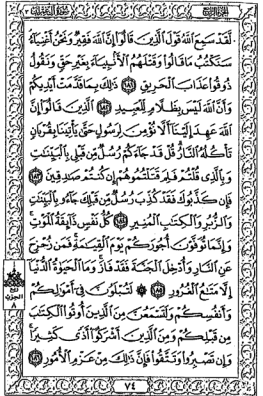 لَّقَدْ سَمِعَ ٱللَّهُ قَوْلَ ٱلَّذِينَ قَالُوٓا۟ إِنَّ ٱللَّهَ فَقِيرٌ وَنَحْنُ أَغْنِيَآءُ
سَنَكْتُبُ مَا قَالُوا۟ وَقَتْلَهُمُ ٱلْأَنۢبِيَآءَ بِغَيْرِ حَقٍّ وَنَقُولُ
ذُوقُوا۟ عَذَابَ ٱلْحَرِيقِ ١٨١ ذَٰلِكَ بِمَا قَدَّمَتْ أَيْدِيكُمْ
وَأَنَّ ٱللَّهَ لَيْسَ بِظَلَّامٍ لِّلْعَبِيدِ ١٨٢ ٱلَّذِينَ قَالُوٓا۟ إِنَّ
ٱللَّهَ عَهِدَ إِلَيْنَآ أَلَّا نُؤْمِنَ لِرَسُولٍ حَتَّىٰ يَأْتِيَنَا بِقُرْبَانٍ
تَأْكُلُهُ ٱلنَّارُ قُلْ قَدْ جَآءَكُمْ رُسُلٌ مِّن قَبْلِى بِٱلْبَيِّنَٰتِ
وَبِٱلَّذِى قُلْتُمْ فَلِمَ قَتَلْتُمُوهُمْ إِن كُنتُمْ صَٰدِقِينَ ١٨٣
فَإِن كَذَّبُوكَ فَقَدْ كُذِّبَ رُسُلٌ مِّن قَبْلِكَ جَآءُو بِٱلْبَيِّنَٰتِ
وَٱلزُّبُرِ وَٱلْكِتَٰبِ ٱلْمُنِيرِ ١٨٤ كُلُّ نَفْسٍ ذَآئِقَةُ ٱلْمَوْتِ
وَإِنَّمَا تُوَفَّوْنَ أُجُورَكُمْ يَوْمَ ٱلْقِيَٰمَةِ فَمَن زُحْزِحَ
عَنِ ٱلنَّارِ وَأُدْخِلَ ٱلْجَنَّةَ فَقَدْ فَازَ وَمَا ٱلْحَيَوٰةُ ٱلدُّنْيَآ
إِلَّا مَتَٰعُ ٱلْغُرُورِ ١٨٥ ۞ لَتُبْلَوُنَّ فِىٓ أَمْوَٰلِكُمْ
وَأَنفُسِكُمْ وَلَتَسْمَعُنَّ مِنَ ٱلَّذِينَ أُوتُوا۟ ٱلْكِتَٰبَ
مِن قَبْلِكُمْ وَمِنَ ٱلَّذِينَ أَشْرَكُوٓا۟ أَذًى كَثِيرًا
وَإِن تَصْبِرُوا۟ وَتَتَّقُوا۟ فَإِنَّ ذَٰلِكَ مِنْ عَزْمِ ٱلْأُمُورِ ١٨٦
ربع
الحزب
٨
٧٤